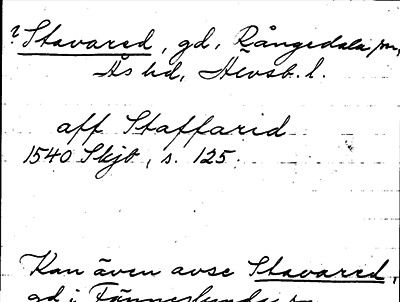 ? Stavared, gd, Rångedala sn,
Ås hd, Älvsb. l.
aff Staffarid
1540 Skjb, s. 125.
Kan även avse Stavared,
gd i Fännerslunda sn